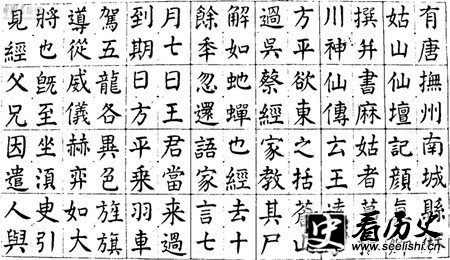 有唐撫州南城縣
姑山仙壇記顏真
撰并書麻姑者
川神仙傳云王遠
方平欲東之括蒼山
過吳蔡經家教其尸
解如虵蟬也經去十
餘秊忽還語家言七
月七日王君當來過
到期日方平乘羽車
駕五龍各異色旌旗
導從威儀赫弈如大
將也既至坐湏臾引
見經父兄因遣人與
史 看历史
www.seelishi.cn